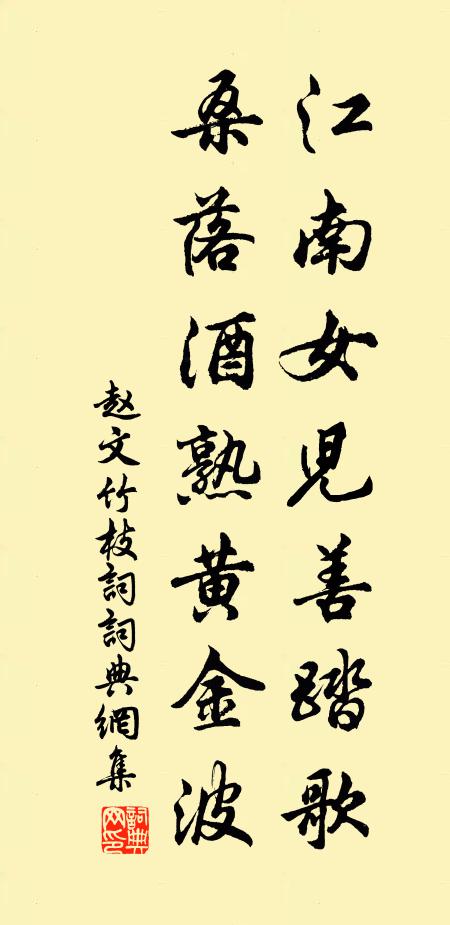 江南女兒善踏歌
桑落酒熟黄金波
赵文竹枝詞詞典網集
詞典网印